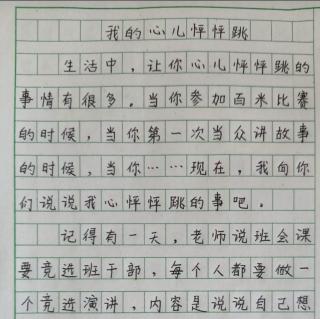 我的心儿怦怦跳
生活中，让你心儿怦怦跳的
事情有很多。当你参加百米比赛
的时候，当你第一次当众讲故事
的时候，当你……现在，我向你
们说说我心怦怦跳的事吧。
记得有一天，老师说班会课
要竞选班干部，每个人都要做一
个竞选演讲，内容是说说自己想